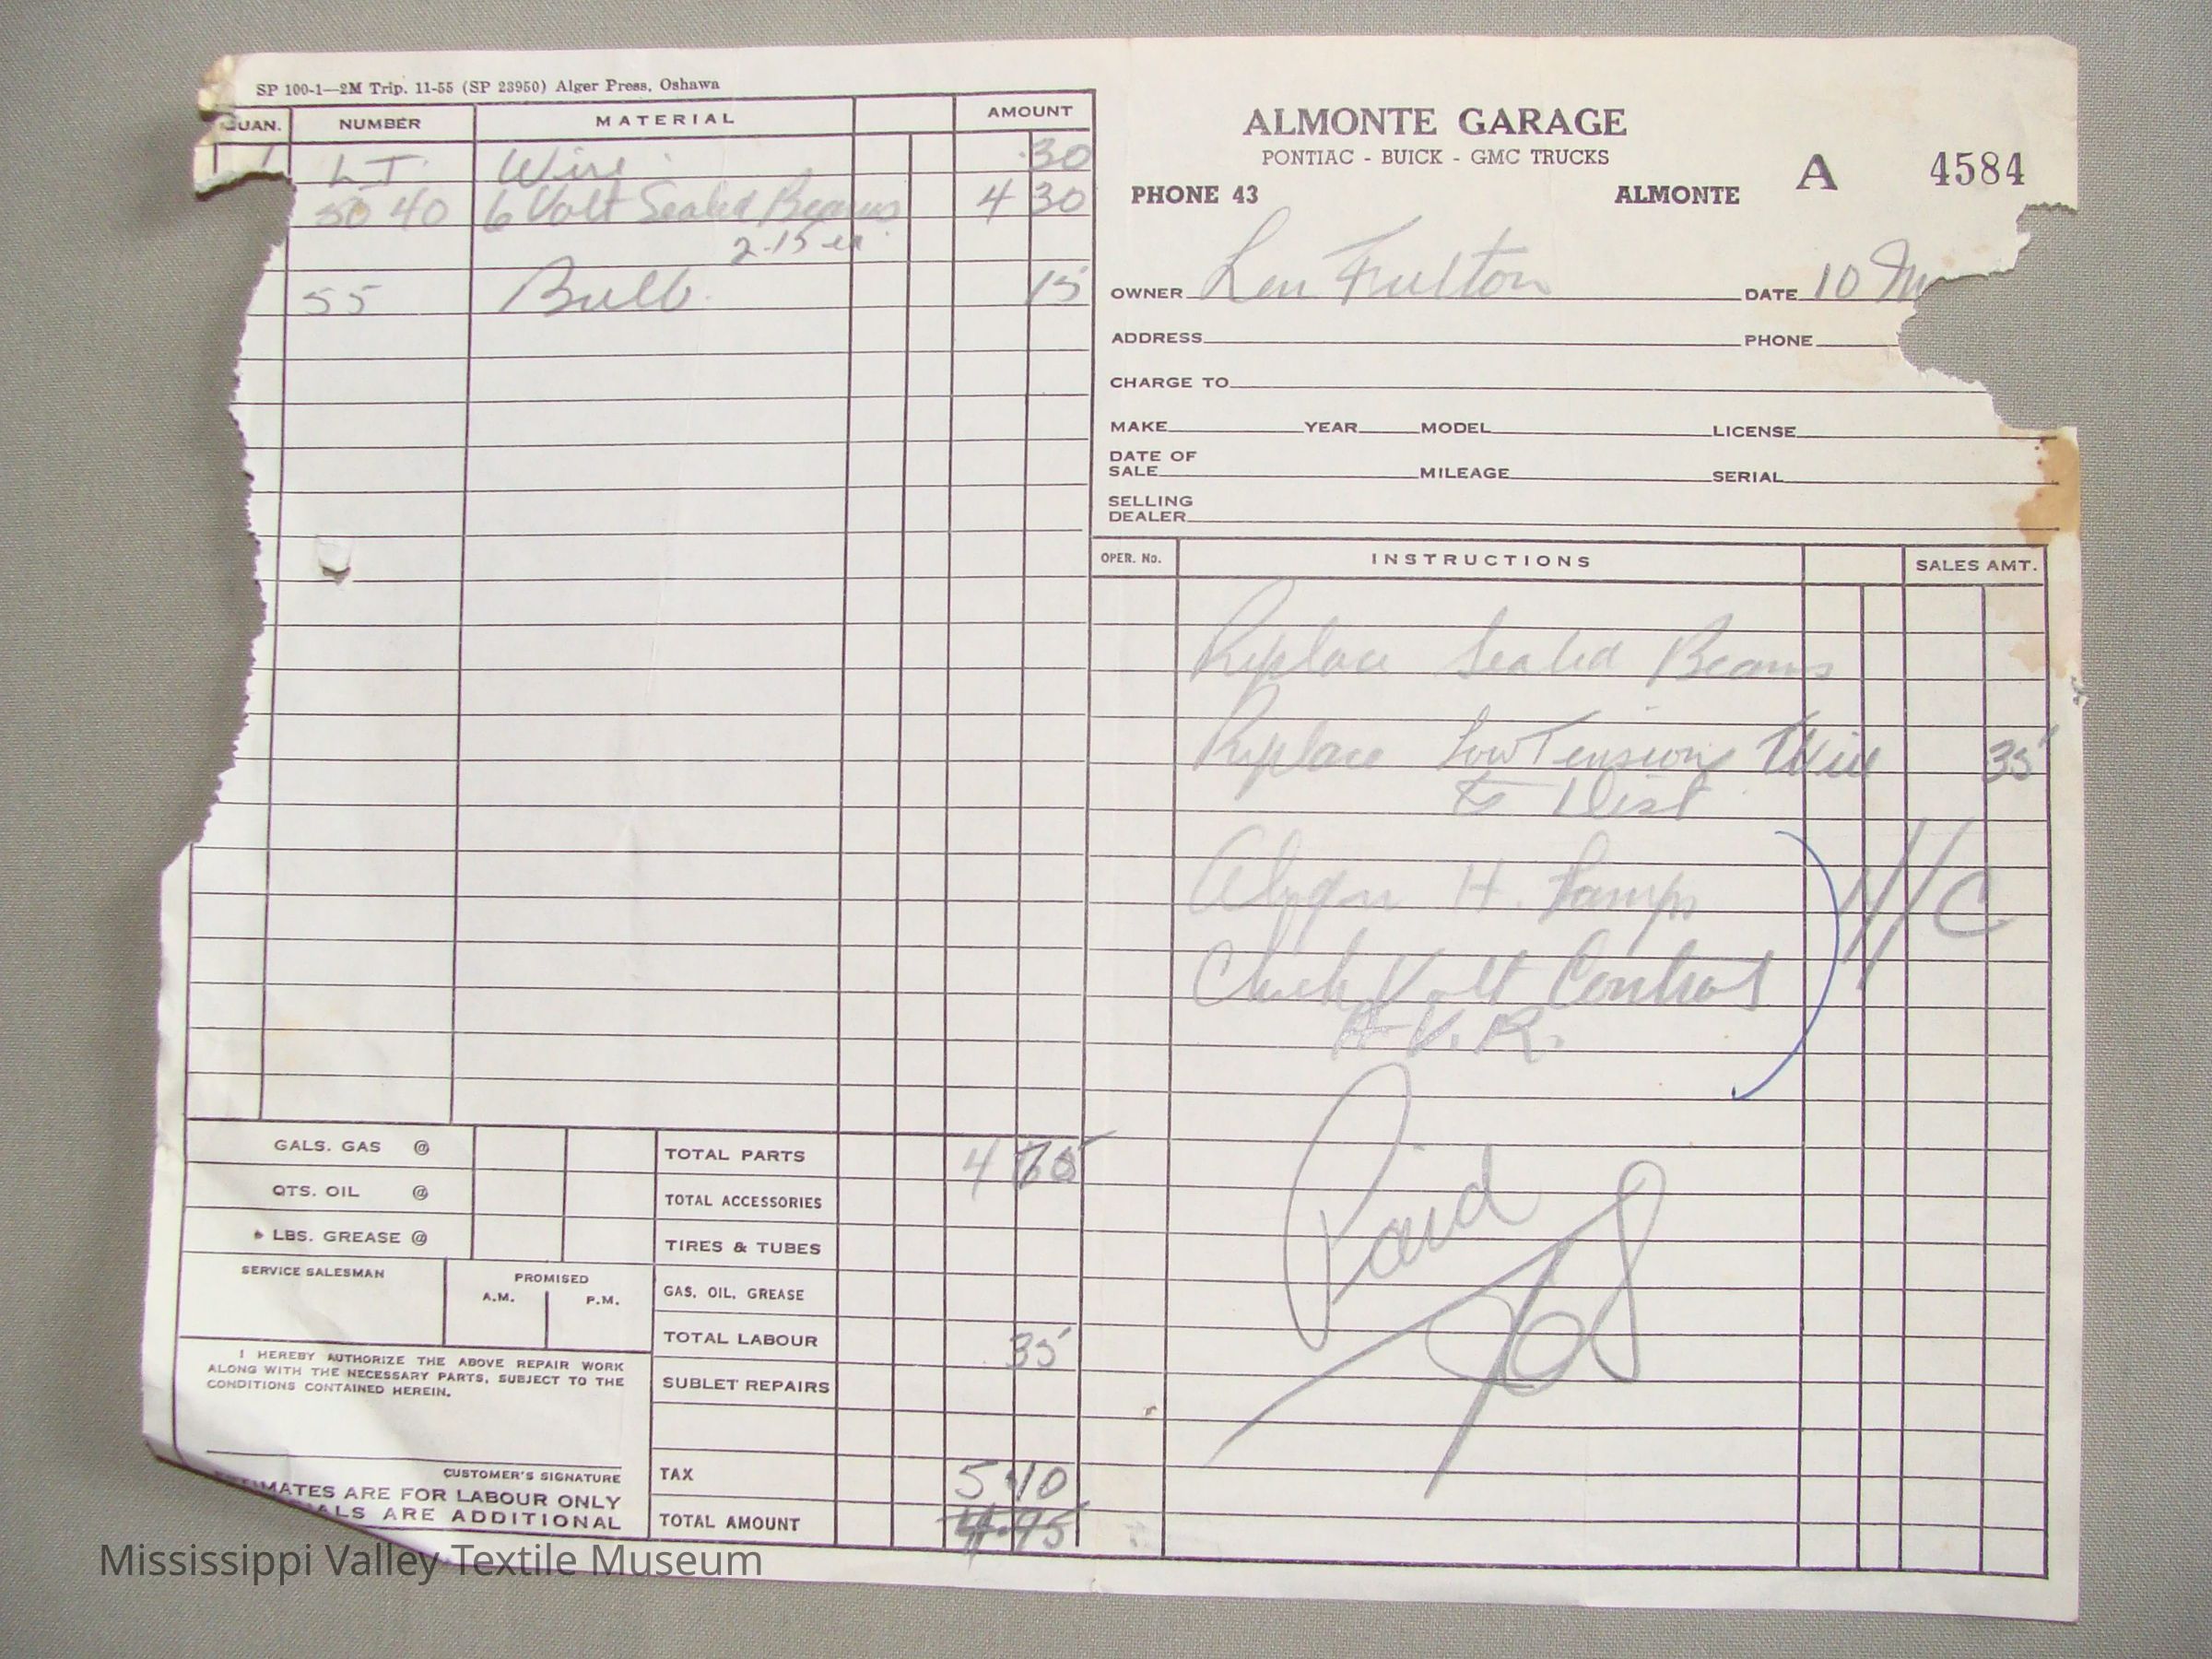 SP 100-1—2M Trip. 11-55 (SP 23950) Alger Press, Oshawa
QUAN. NUMBER MATERIAL AMOUNT
1 L T. Wire .30
5040 6 Volt Sealed Beams 4 30
2.15 ea.
55 Bulb 15
GALS. GAS @
QTS. OIL @
LBS. GREASE @
SERVICE SALESMAN
PROMISED
A.M. P.M.
I HEREBY AUTHORIZE THE ABOVE REPAIR WORK
ALONG WITH THE NECESSARY PARTS, SUBJECT TO THE
CONDITIONS CONTAINED HEREIN.
CUSTOMER'S SIGNATURE
ESTIMATES ARE FOR LABOUR ONLY
ALS ARE ADDITIONAL
TOTAL PARTS 4 75
TOTAL ACCESSORIES
TIRES & TUBES
GAS, OIL, GREASE
TOTAL LABOUR 35
SUBLET REPAIRS
TAX 5.10
TOTAL AMOUNT 4.95
ALMONTE GARAGE
PONTIAC - BUICK - GMC TRUCKS
PHONE 43 ALMONTE A 4584
OWNER Len Fulton DATE 10 M
ADDRESS PHONE
CHARGE TO
MAKE YEAR MODEL LICENSE
DATE OF
SALE MILEAGE SERIAL
SELLING
DEALER
OPER. No. INSTRUCTIONS SALES AMT.
Replace Sealed Beams
Replace Low Tension Wire 35
to Dist
Align H. Lamps N/C
Check Volt Control
V.R.
Paid
Mississippi Valley Textile Museum